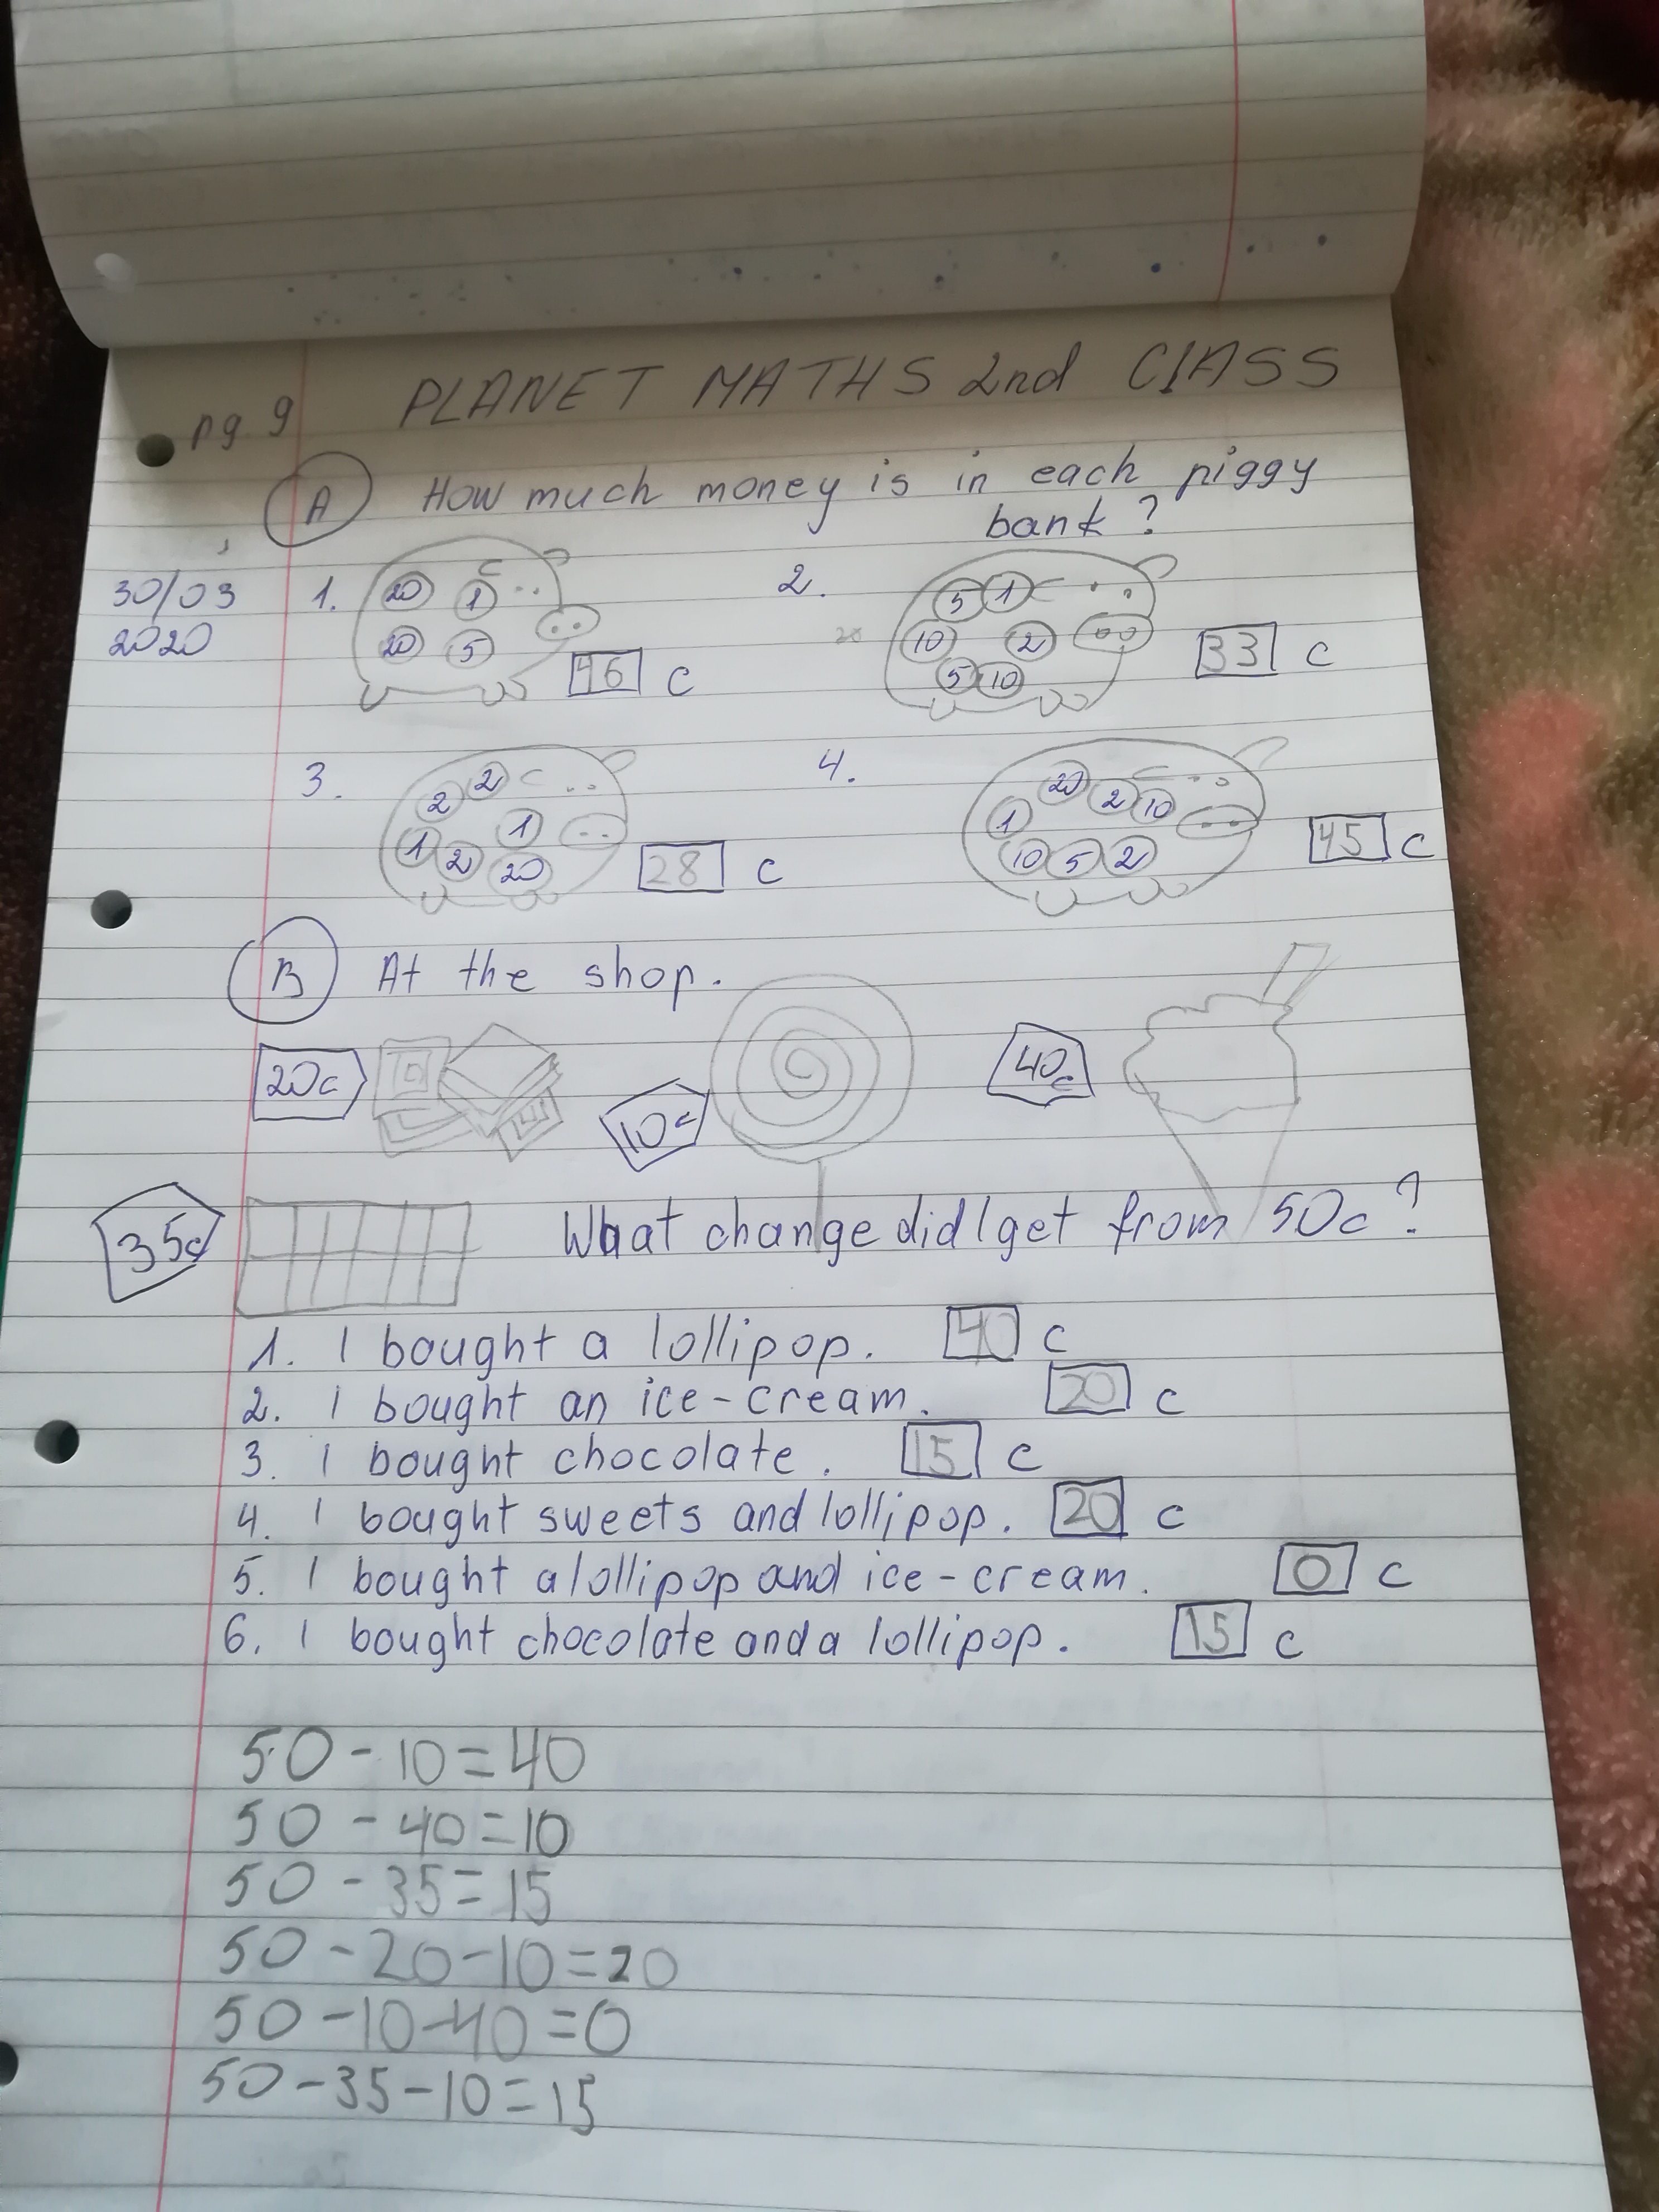 pg 9 PLANET MATHS 2nd CLASS
A How much money is in each piggy
bank?
30/03
2020
1. 20 1 20 5 46 c
2. 5 1 10 2 5 10 33 c
3. 2 2 1 1 2 20 28 c
4. 20 2 10 1 10 5 2 45 c
B At the shop.
20c 10c 40c
35c What change did I get from 50c?
1. I bought a lollipop. 40 c
2. I bought an ice-cream. 20 c
3. I bought chocolate. 15 c
4. I bought sweets and lollipop. 20 c
5. I bought a lollipop and ice-cream. 0 c
6. I bought chocolate and a lollipop. 15 c
50-10=40
50-40=10
50-35=15
50-20-10=20
50-10-40=0
50-35-10=15